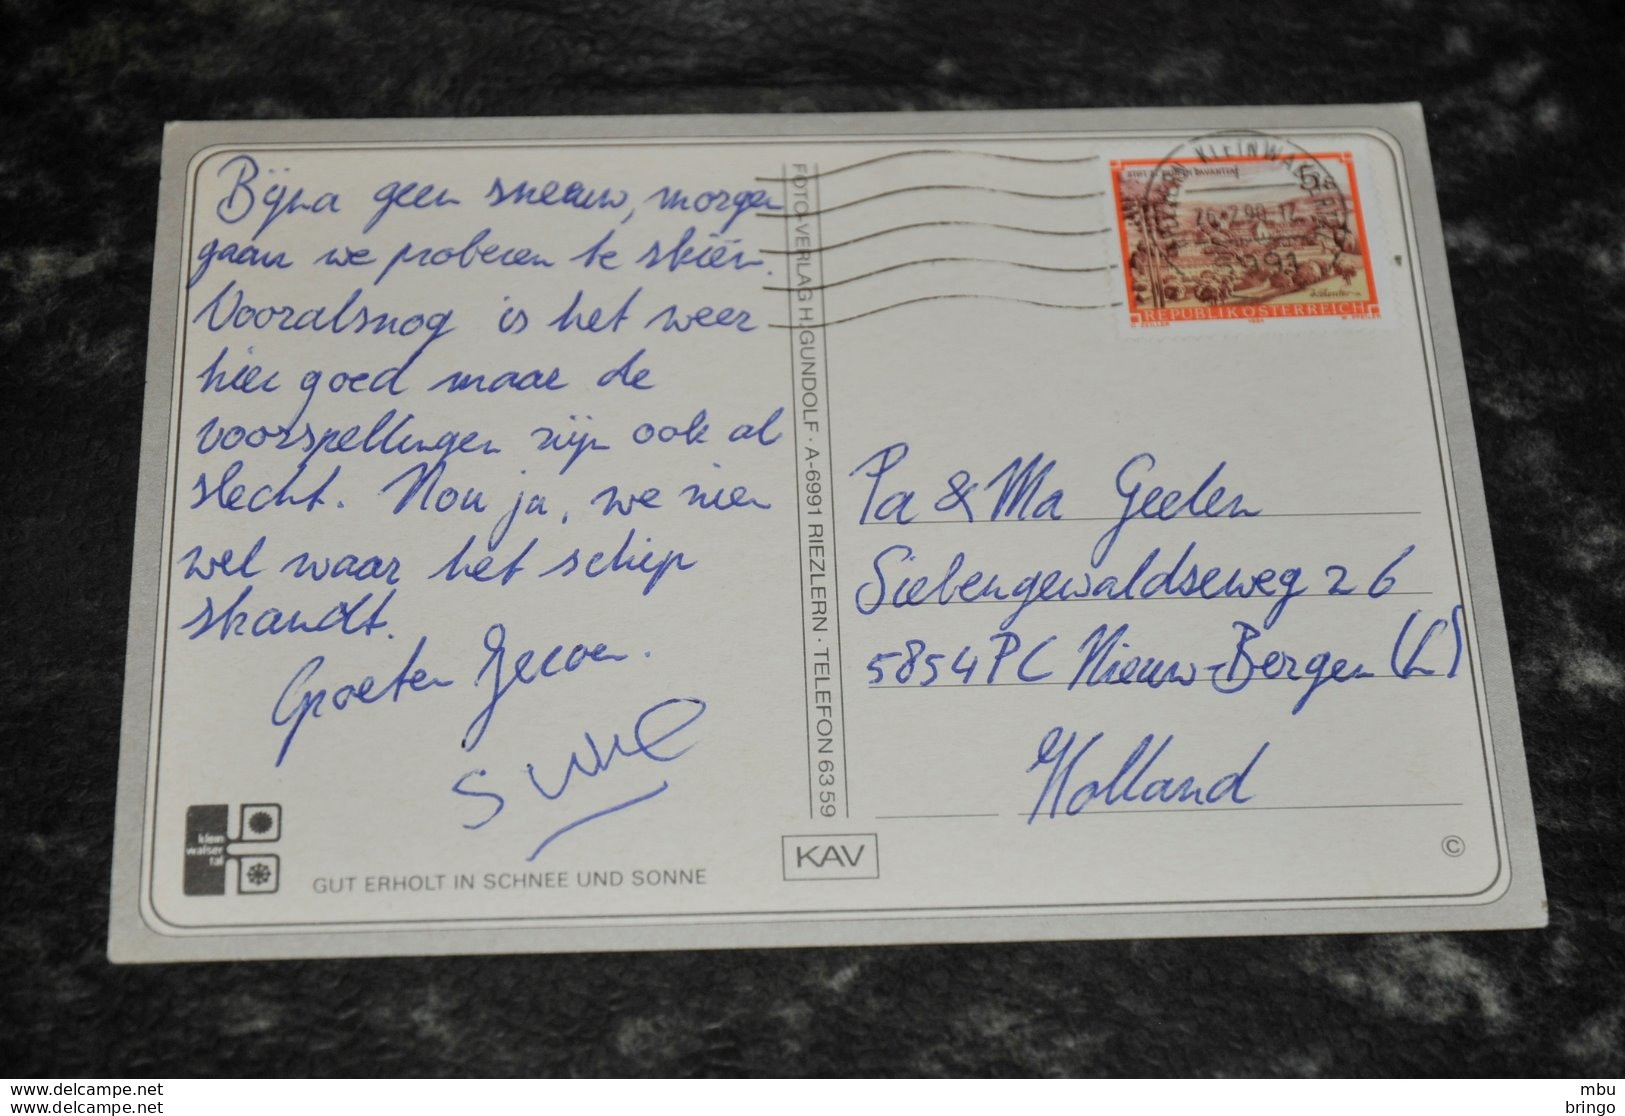 Bijna geen sneeuw, morgen
gaan we proberen te skiën.
Vooralsnog is het weer
hier goed maar de
voorspellingen zijn ook al
slecht. Nou ja, we zien
wel waar het schip
strandt.
Groeten Jeroen.
klein
walser
tal
GUT ERHOLT IN SCHNEE UND SONNE
FOTO-VERLAG H. GUNDOLF · A-6991 RIEZLERN · TELEFON 6359
KAV
KLEINWALSERTAL
26.-2.90-17
6993
S 5
REPUBLIK ÖSTERREICH
1984
Pa & Ma Geelen
Siebengewaldseweg 26
5854 PC Nieuw-Bergen (L)
Holland
©
www.delcampe.net
www.delcampe.net
mbu
bringo